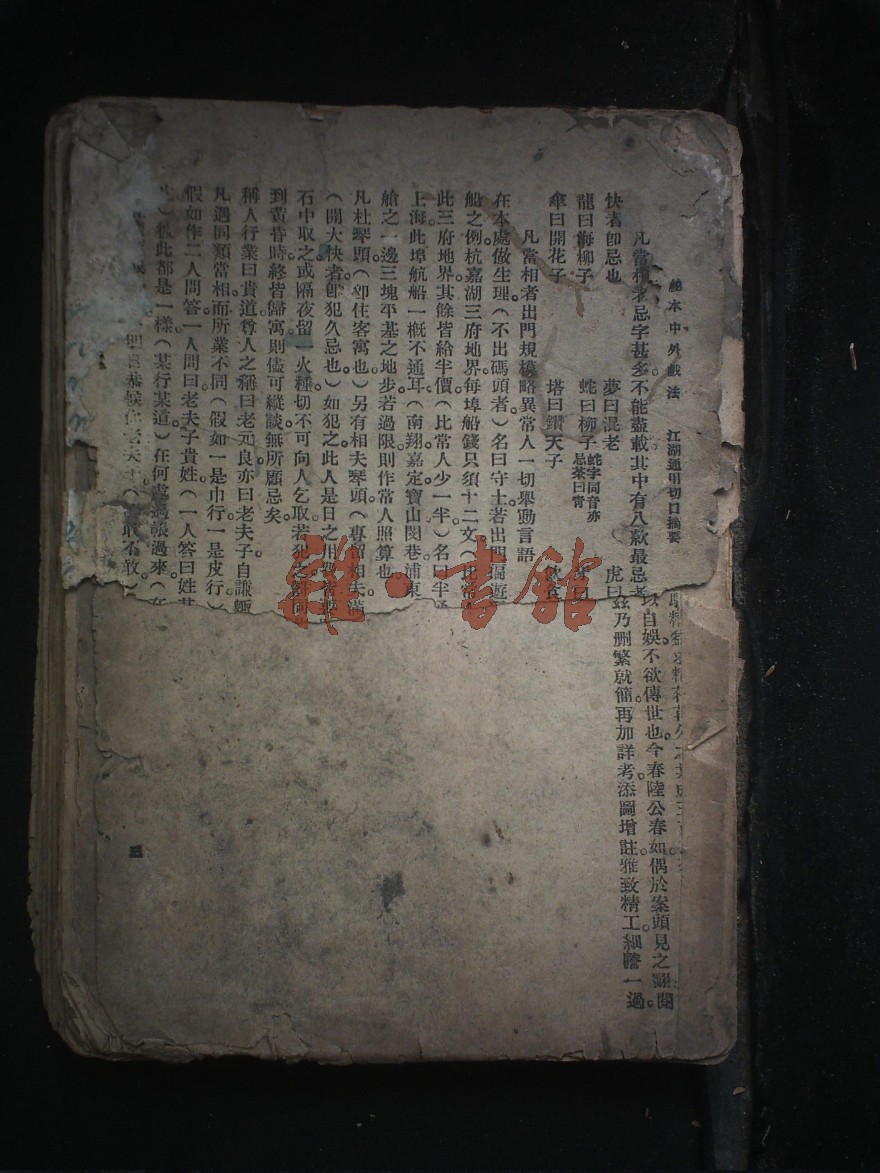 繪本中外戲法 江湖通用切口摘要
凡當相者忌字甚多不能盡載其中有八款最忌者
快者卽忌也 夢曰混老 虎曰
龍曰海柳子 蛇曰柳子蛇字同音亦忌茶曰青 牙曰
傘曰開花子 塔曰鑽天子
凡當相者出門規模略異常人一切舉動言語
在本處做生理(不出碼頭者)名曰守土若出門
船之例杭嘉湖三府地界每埠船錢只須十二文
此三府地界其餘皆給半價(比常人少一半)名曰半
上海此埠航船一概不通耳(南翔嘉定寶山閔巷浦東
艙之一邊三塊平基之地步若過限則作常人照算也
凡杜琴頭(卽住客寓也)另有相夫琴頭(專留相夫
(開大快者卽犯久忌也)如犯之此人是日之用
石中取之或隔夜留一火種切不可向人乞取若犯之
到黃昏時終皆歸寓則儘可縱談無所顧忌矣
稱人行業曰貴道尊人之稱曰老元良亦曰老夫子自謙
凡遇同類當相而所業不同(假如一是巾行一是皮行
假如作二人問答一人問曰老夫子貴姓(一人答曰姓
彼此都是一樣(某行某道)在何處過來
明日恭候
三
以自娛不欲傳世也今春陸公春如偶於案頭見之翻閱
茲乃刪繁就簡再加詳考添圖增註雅致精工細謄一過
雜·書館